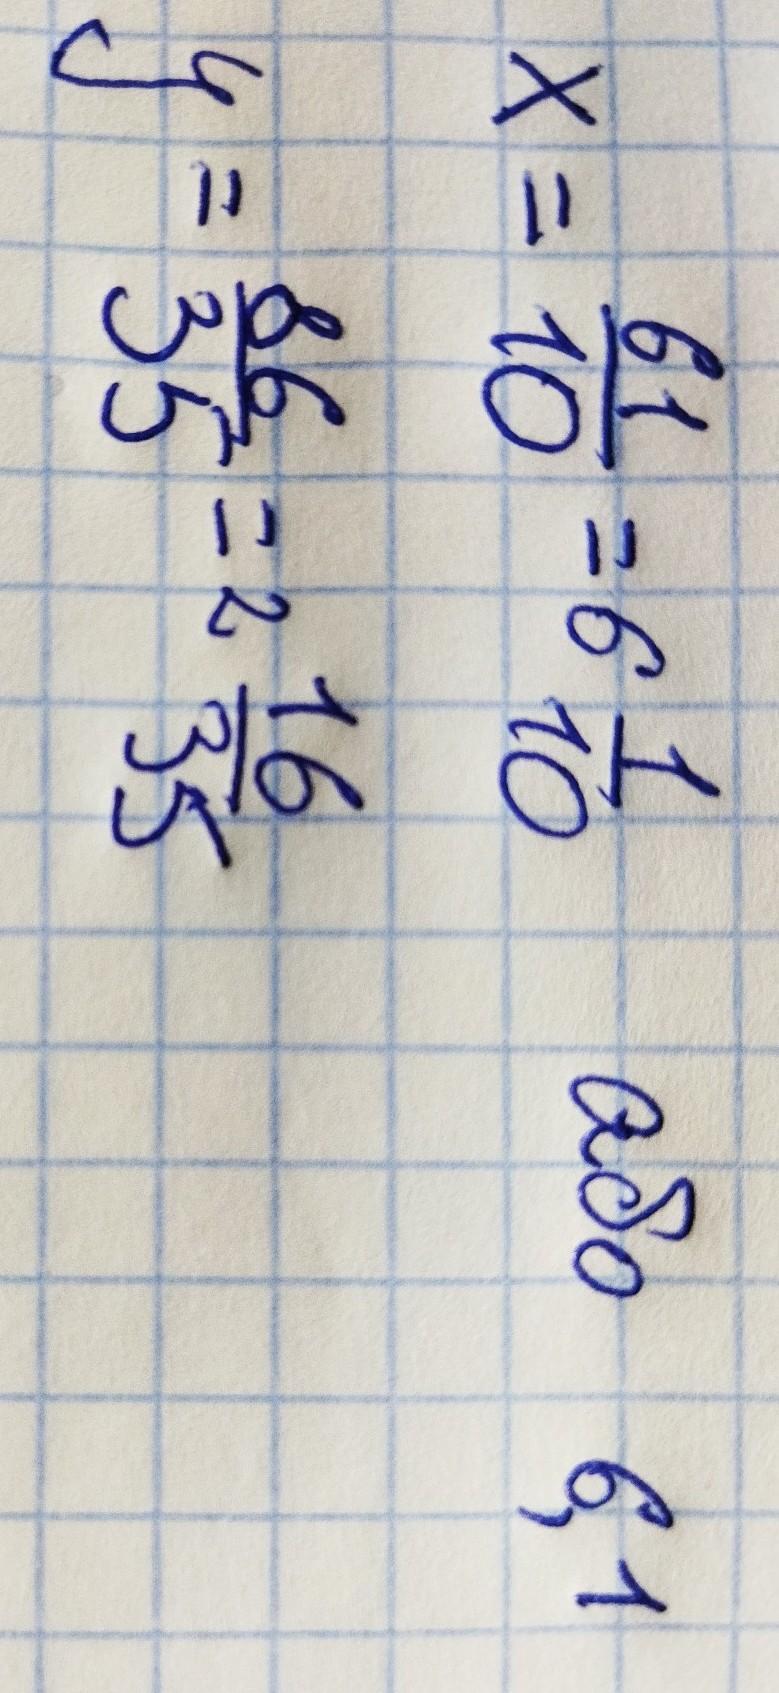 x = 61/10 = 6 1/10 або 6,1
y = 86/35 = 2 16/35